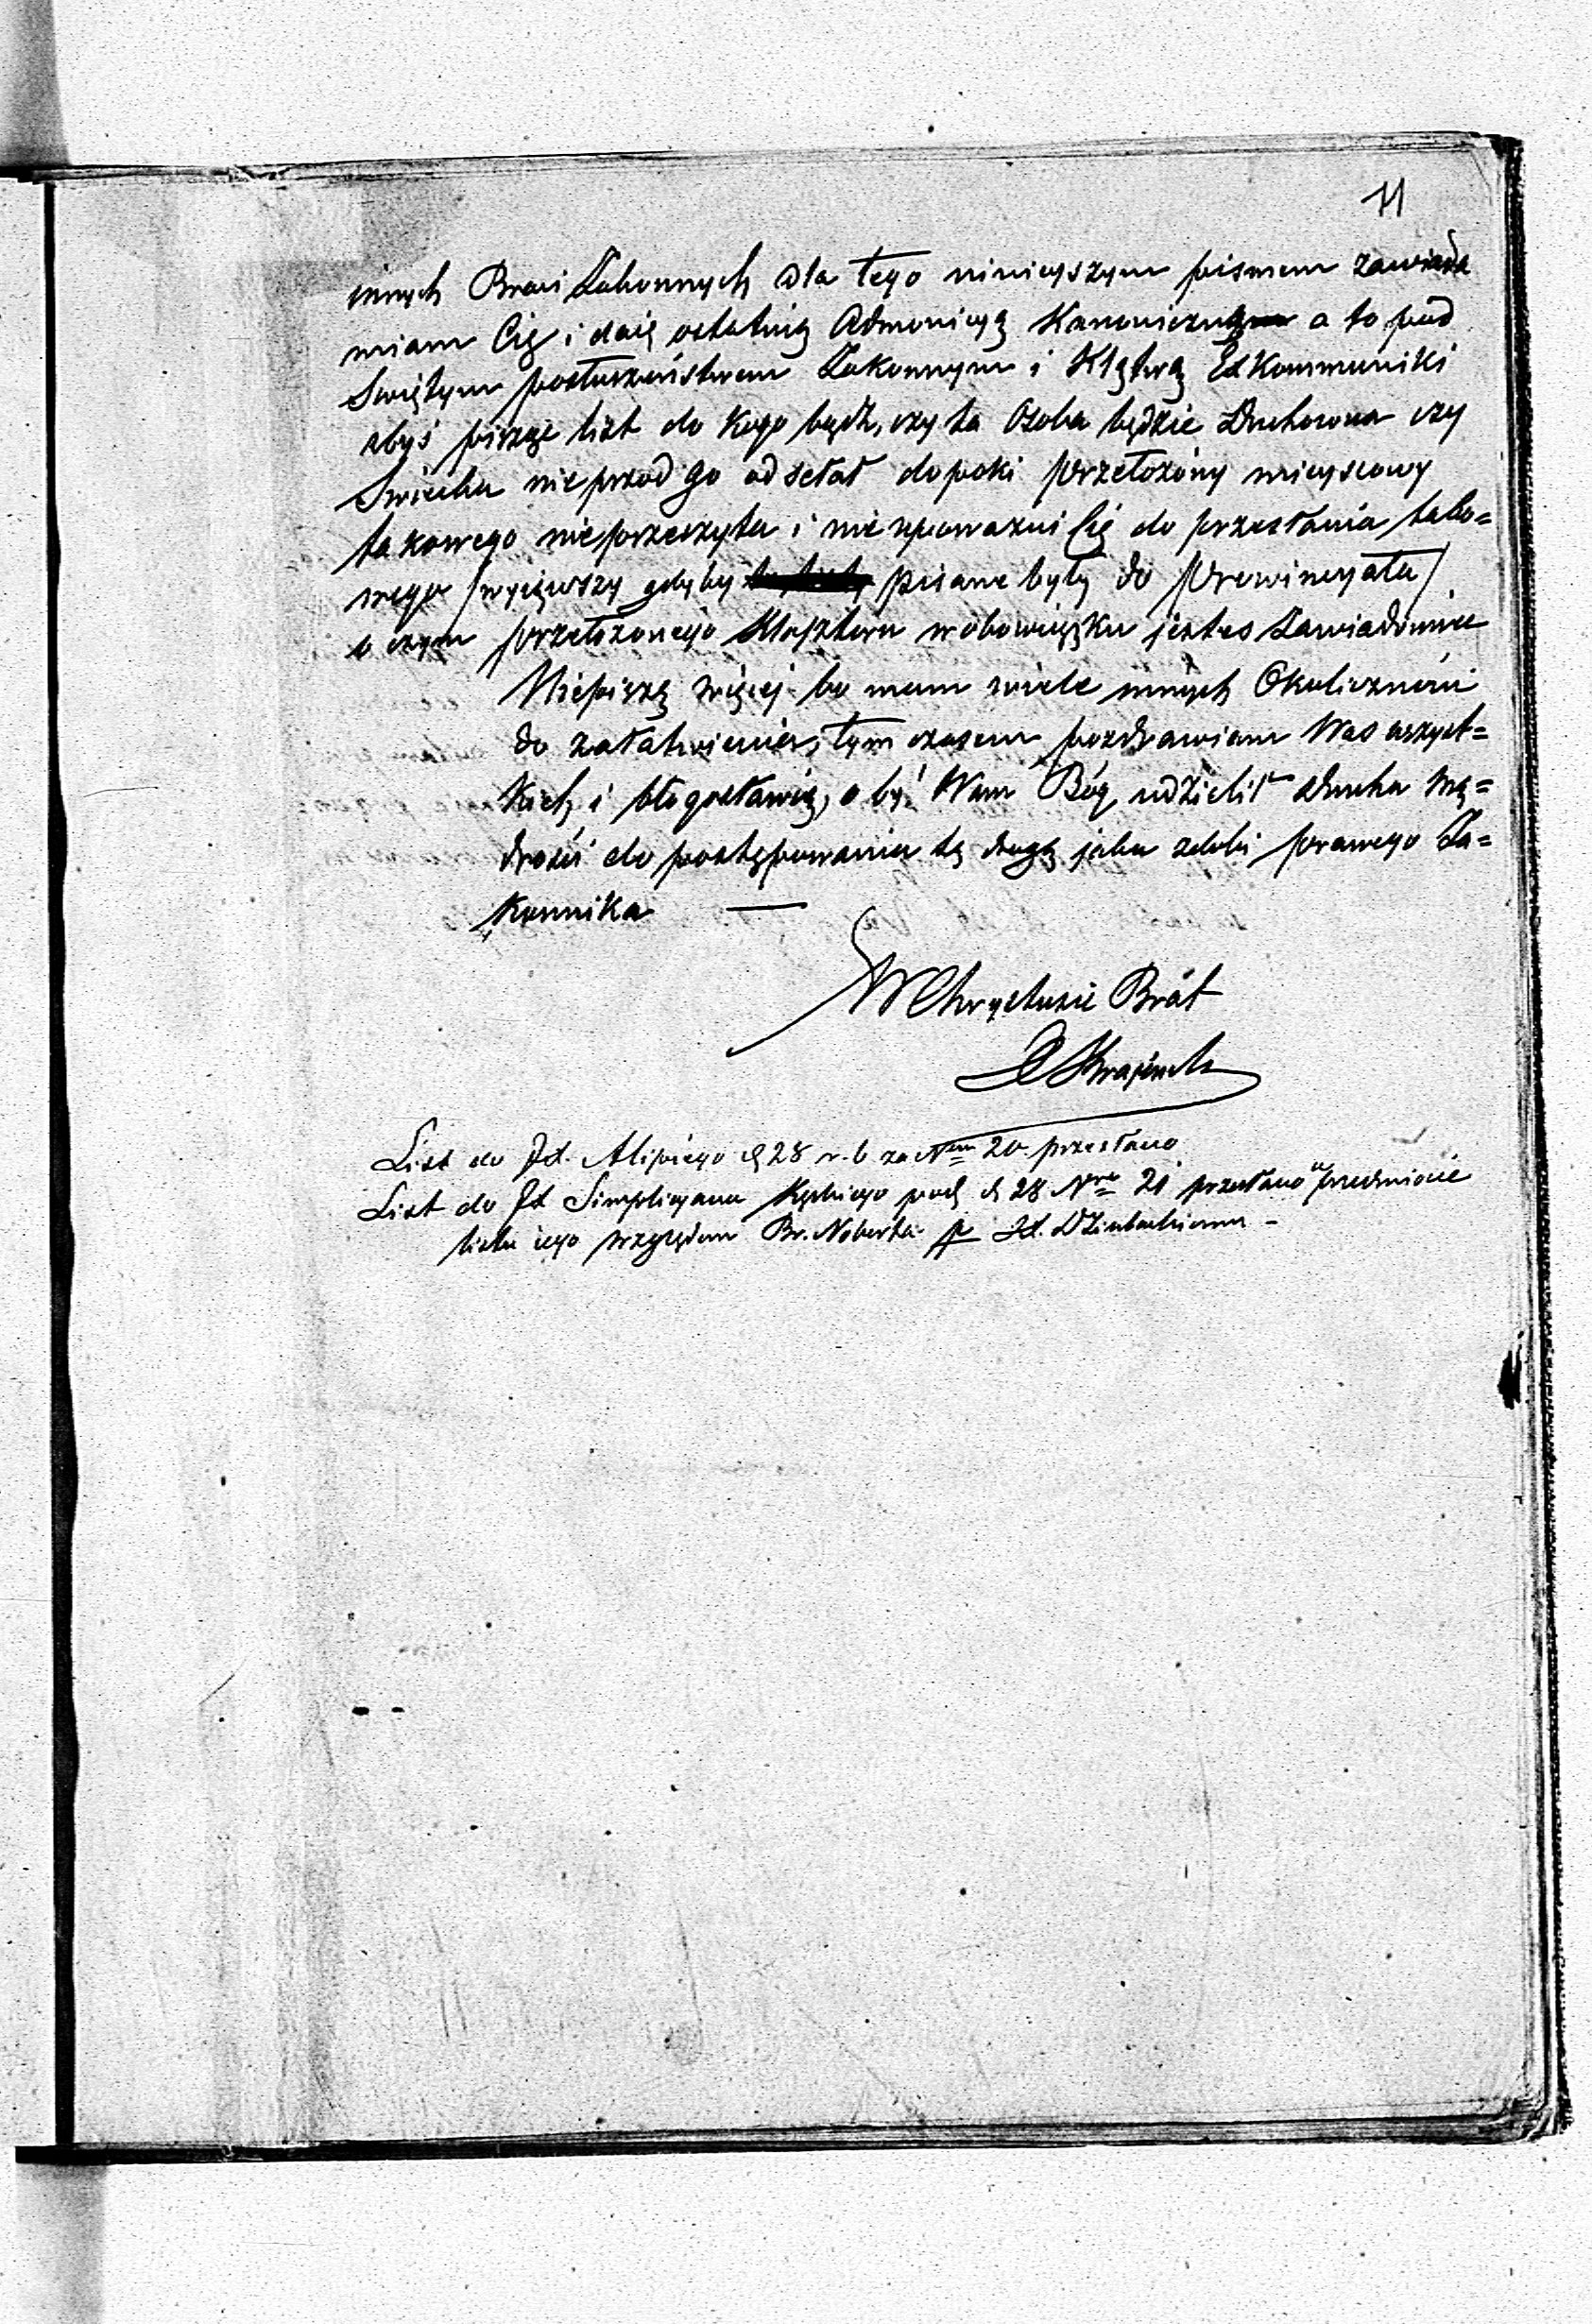 11
innych Braci Zakonnych dla tego ninieyszym pismem zawiada
miam Cię i daię ostatnią Admonicyą Kanoniczną a to pod
Swiętym posłuszeństwem Zakonnym i Klątwą Exkommuniki
abyś pisząc list do kogo bądź, czy ta Osoba będzie Duchowna czy
Swiecka nie przod go odsełał dopoki Przełożóny mieyscowy
takowego nie przeczyta i nie upoważni Cię do przesłania tako=
wego /wyiąwszy gdyby pisane były do Prowincyała/
o czym przełożonego Klasztoru w obowiązku jestes Zawiadomić
Niepiszę więcej bo mam wiele innych Okoliczności
do załatwienia, tym czasem pozdrawiam Was wszyst=
kich i błogosławię, oby Wam Bóg udzielił Ducha mą=
drości do postępowania tą drogą jaka zdobi prawego Za=
konnika —
W Chrystusie Brat
List do Jx. Alipiego d 28 r. b za Nrm 20 przesłano
List do Jx Simplicyana pod d 28 Nrm 21 przesłano w przedmiocie
listu iego względem Br. Noberta